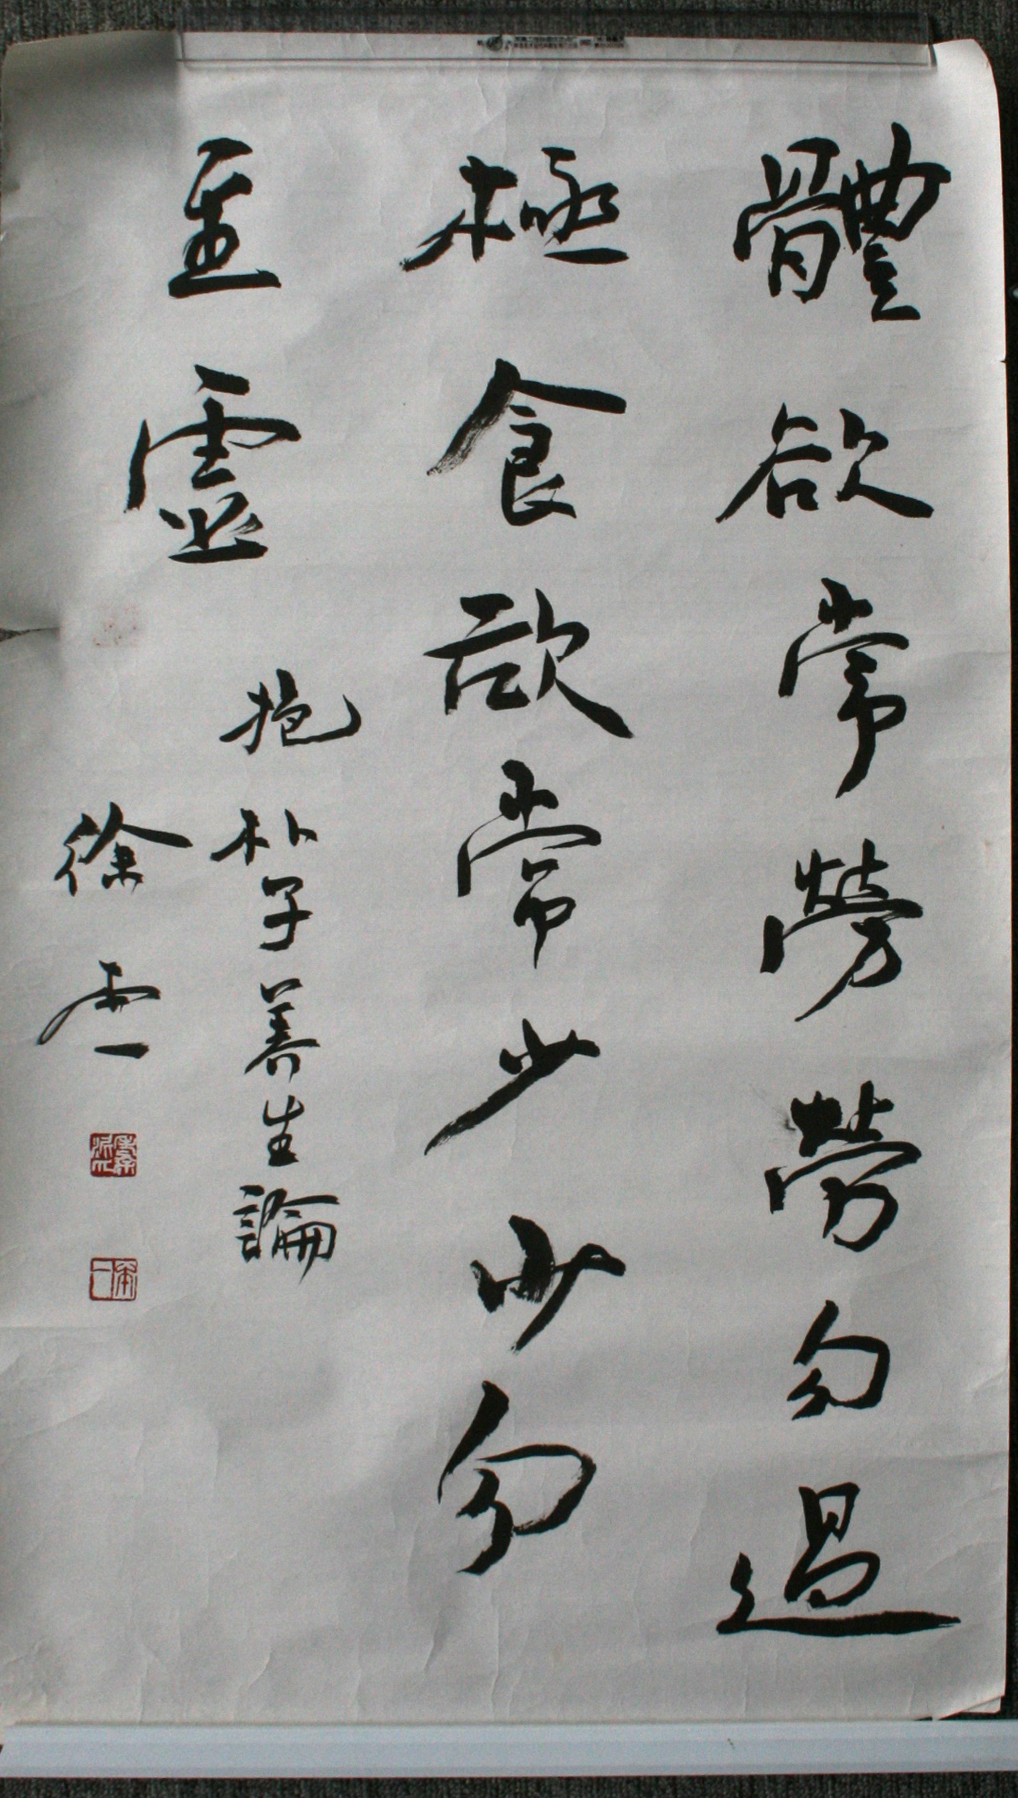 體欲常勞勞勿過
極食欲常少少勿
至虛
抱朴子養生論
徐